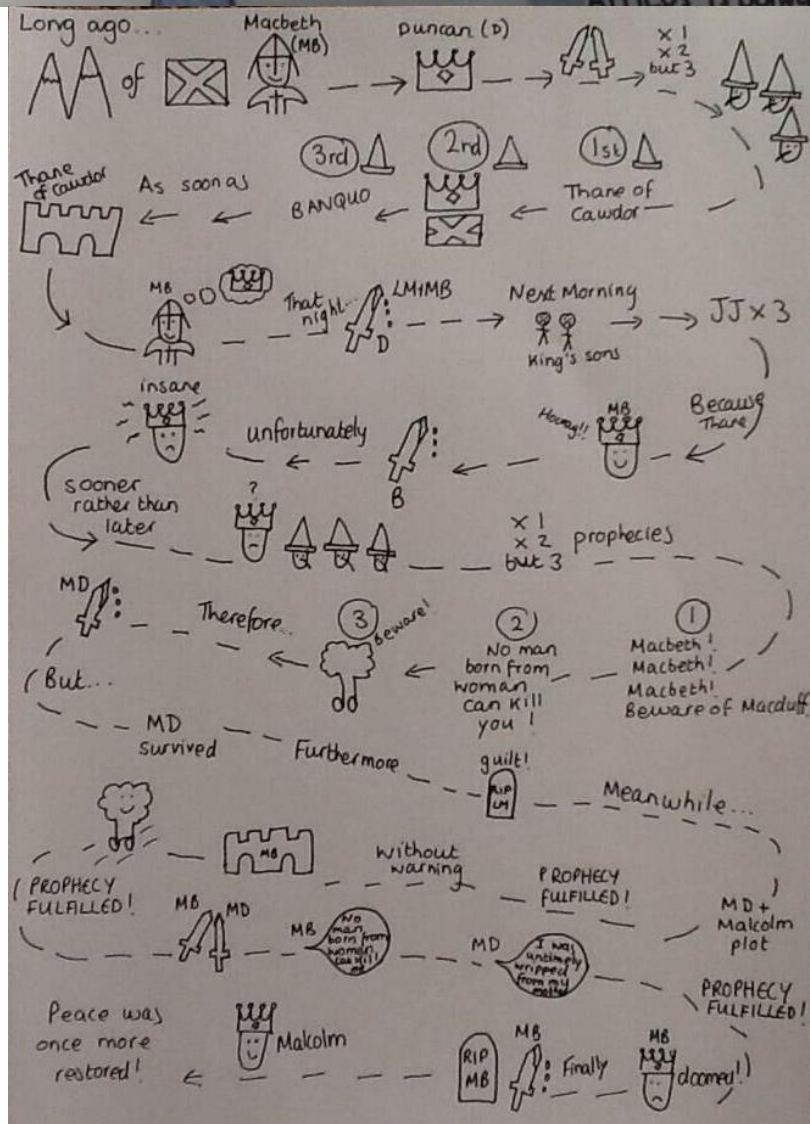 Long ago...
Macbeth
(MB)
Duncan (D)
of
x 1
x 2
but 3
1st
2nd
3rd
Thane of
Cawdor
BANQUO
As soon as
Thane
of Cawdor
MB
That
night...
LM+MB
D
Next Morning
King's sons
JJ x 3
Because
Thane
MB
Hooray!!
B
unfortunately
insane
sooner
rather than
later
?
x 1
x 2
but 3
prophecies
1
Macbeth!
Macbeth!
Macbeth!
Beware of Macduff
2
No man
born from
woman
can kill
you!
3
Beware!
Therefore..
MD
But...
MD
survived
Furthermore
guilt!
RIP
LM
Meanwhile...
MD +
Malcolm
plot
PROPHECY
FULFILLED!
without
warning
MB
PROPHECY
FULFILLED!
MB MD
MB
No
man
born from
woman
can kill
me
MD
I was
untimely
wripped
from my
mother
PROPHECY
FULFILLED!
MB
doomed!
Finally
MB
RIP
MB
Malcolm
Peace was
once more
restored!